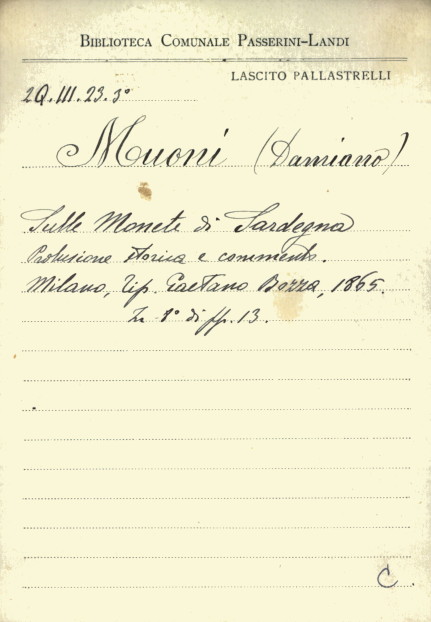 BIBLIOTECA COMUNALE PASSERINI-LANDI
LASCITO PALLASTRELLI
2Q.III.23.3°
Muoni (Damiano)
Sulle Monete di Sardegna
Prolusione storica e commento.
Milano, Tip. Gaetano Bozza, 1865.
In 8° di pp. 13.
C.